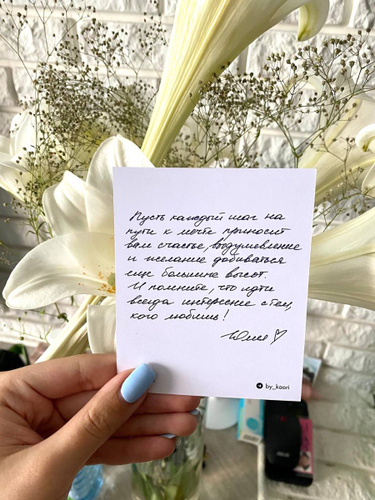 Пусть каждый шаг на
пути к мечте приносит
вам счастье, воодушевление
и желание добиваться
еще больших высот.
И помните, что идти
всегда интереснее с тем,
кого любишь!
Юлия
by_kaori